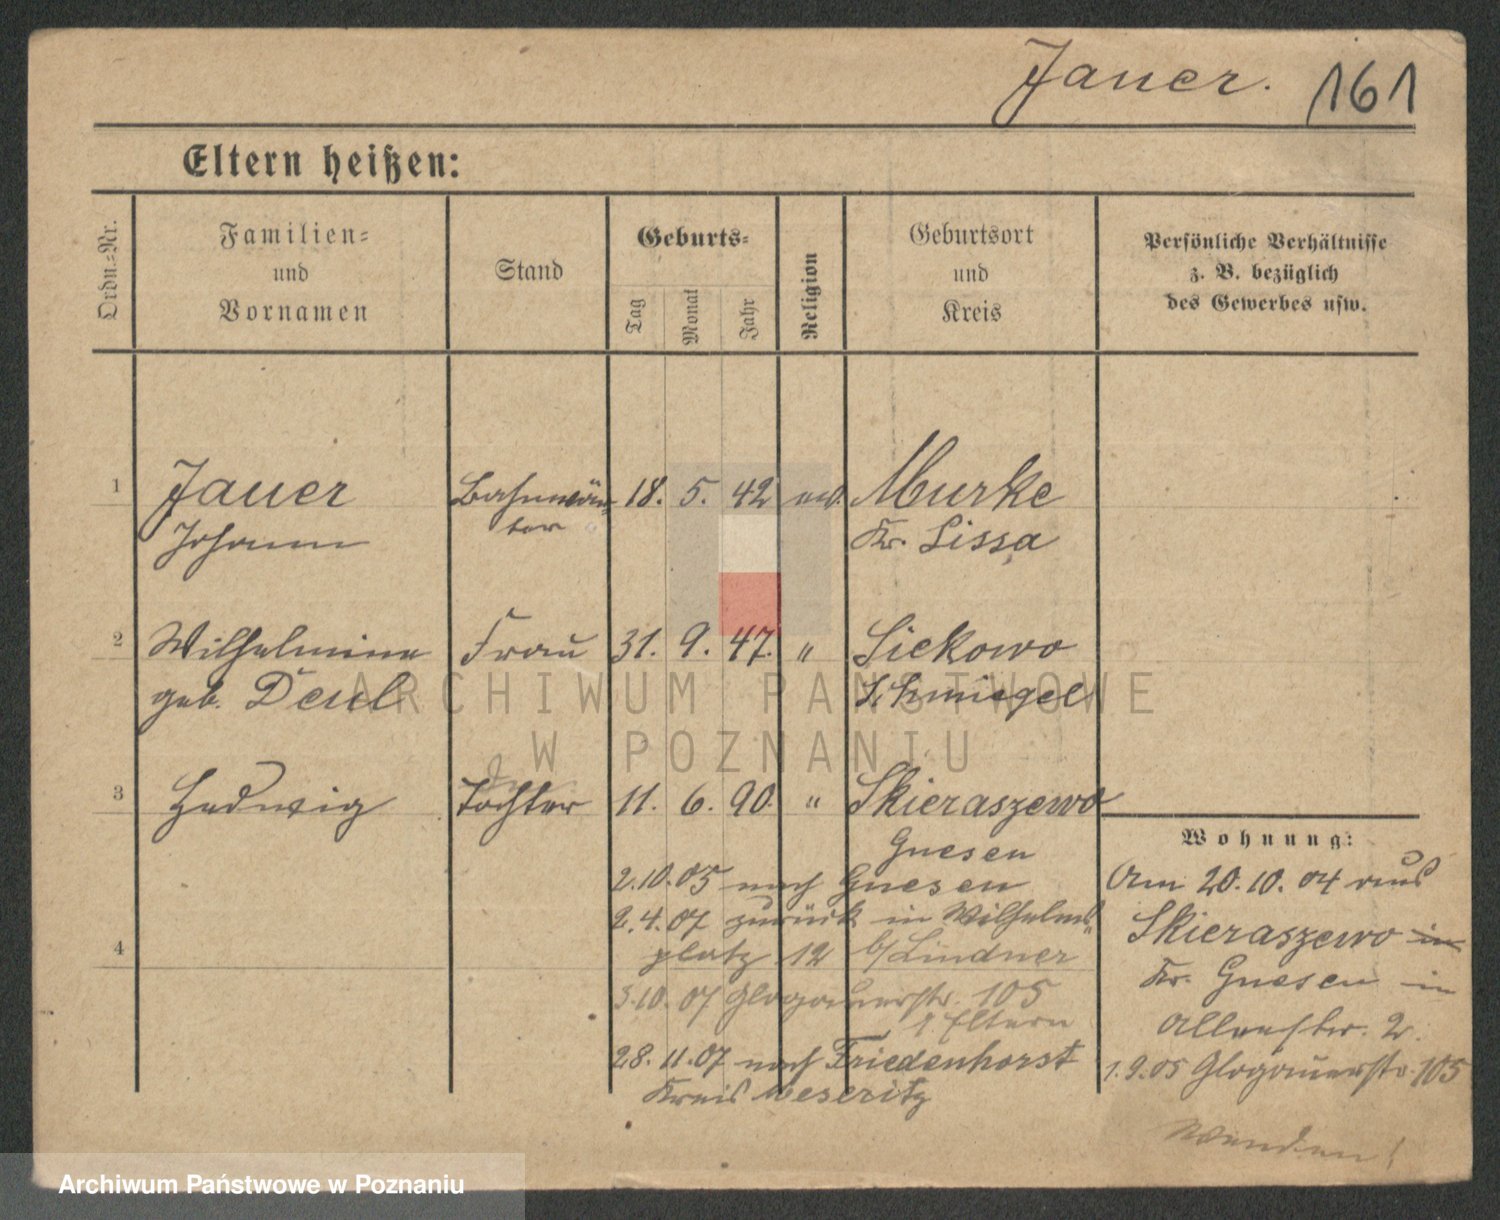 Jauer. 161
Eltern heißen:
Ordn.-Nr.
Familien-
und
Vornamen
Stand
Geburts-
Tag
Monat
Jahr
Religion
Geburtsort
und
Kreis
Persönliche Verhältnisse
z. B. bezüglich
des Gewerbes usw.
1 Jauer Bahnwär- 18. 5. 42 ev. Murke
Johann ter Kr. Lissa
2 Wilhelmine Frau 31. 9. 47. " Siekowo
geb. Deul Schmiegel
ARCHIWUM PAŃSTWOWE
W POZNANIU
3 Hedwig Tochter 11. 6. 90. " Skieraszewo
Gnesen
2.10.05 nach Gnesen
2.4.07 zurück in Wilhelms-
platz 12 b/Lindner
3.10.07 Glogauerstr. 105
Eltern
28.11.07 nach Friedenhorst
Kreis Meseritz
4
Wohnung:
Am 20.10.04 aus
Skieraszewo in
Kr. Gnesen in
1.9.05 Glogauerstr. 105
Wenden!
Archiwum Państwowe w Poznaniu